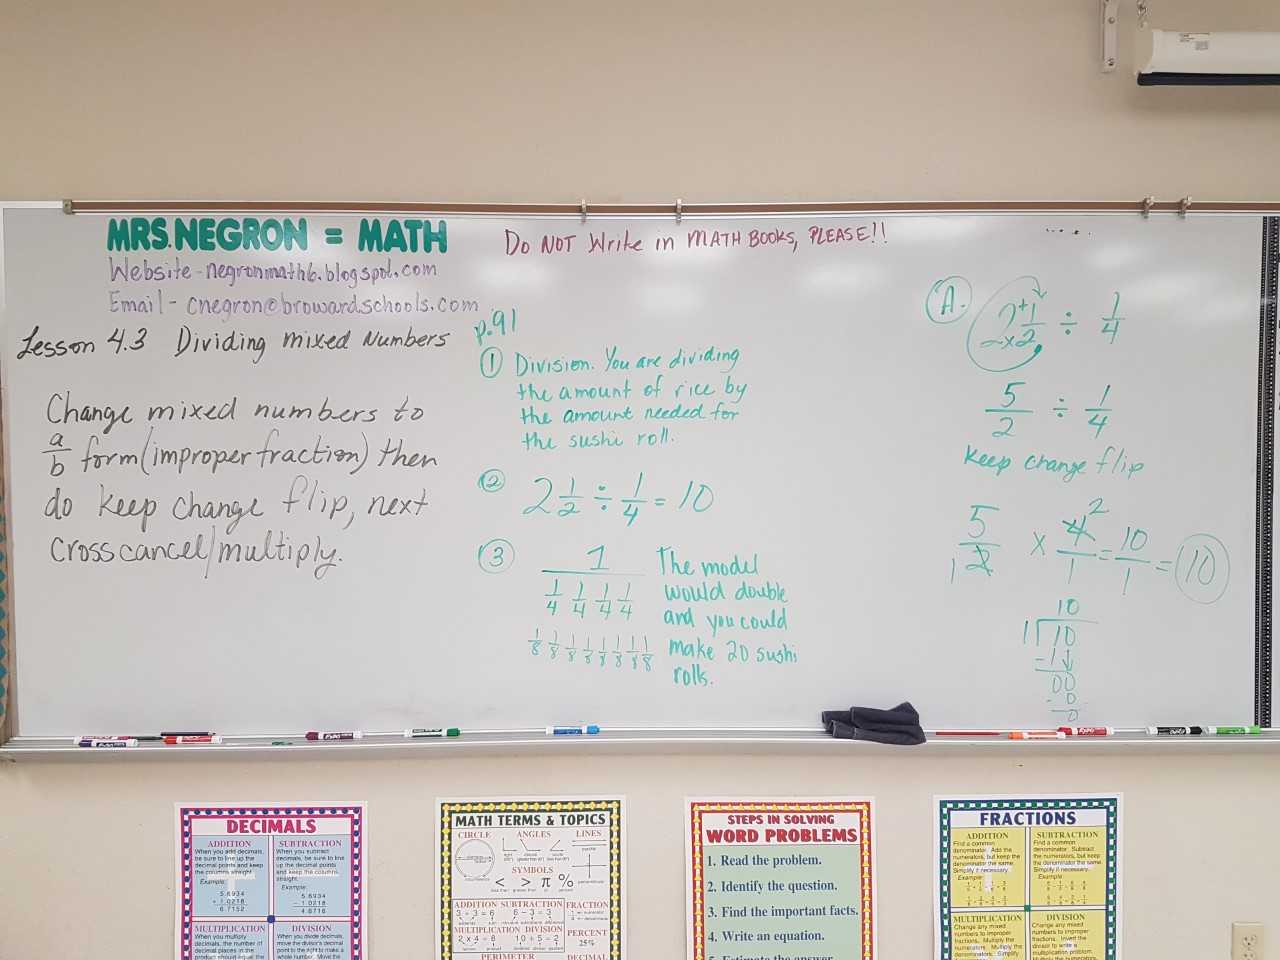 MRS. NEGRON = MATH
Website - negronmath6.blogspot.com
Email - cnegron@browardschools.com
Lesson 4.3 Dividing mixed Numbers
Change mixed numbers to
a/b form (improper fraction) then
do keep change flip, next
cross cancel/multiply.
Do NOT Write in MATH BOOKS, PLEASE!!
p.91
① Division. You are dividing
the amount of rice by
the amount needed for
the sushi roll.
② 2 1/2 ÷ 1/4 = 10
③ 1
1/4 1/4 1/4 1/4
1/8 1/8 1/8 1/8 1/8 1/8 1/8 1/8
The model
would double
and you could
make 20 sushi
rolls.
A. 2 + 1/2 ÷ 1/4
2 x 2
5/2 ÷ 1/4
Keep change flip
5/2 x 4/1 = 10/1 = 10
1 2
10
1 10
-1
00
- 0
0
DECIMALS
ADDITION
When you add decimals,
be sure to line up the
decimal points and keep
the columns straight.
Example:
5.6934
+ 1.0218
6.7152
SUBTRACTION
When you subtract
decimals, be sure to line
up the decimal points
and keep the columns
straight.
Example:
5.6934
- 1.0218
4.6716
MULTIPLICATION
When you multiply
decimals, the number of
decimal places in the
product should equal the
DIVISION
When you divide decimals,
move the divisor's decimal
point to the right to make a
whole number. Move the
MATH TERMS & TOPICS
CIRCLE ANGLES LINES
SYMBOLS
< > π %
ADDITION SUBTRACTION FRACTION
3 + 3 = 6 6 - 3 = 3
MULTIPLICATION DIVISION PERCENT
2 x 4 = 8 10 ÷ 5 = 2 25%
PERIMETER DECIMAL
STEPS IN SOLVING
WORD PROBLEMS
1. Read the problem.
2. Identify the question.
3. Find the important facts.
4. Write an equation.
5. Estimate the answer.
FRACTIONS
ADDITION
Find a common
denominator. Add the
numerators, but keep the
denominator the same.
Simplify if necessary.
Example:
SUBTRACTION
Find a common
denominator. Subtract
the numerators, but keep
the denominator the same.
Simplify if necessary.
Example:
MULTIPLICATION
Change any mixed
numbers to improper
fractions. Multiply the
numerators. Multiply the
denominators. Simplify
DIVISION
Change any mixed
numbers to improper
fractions. Invert the
divisor to write a
multiplication problem.